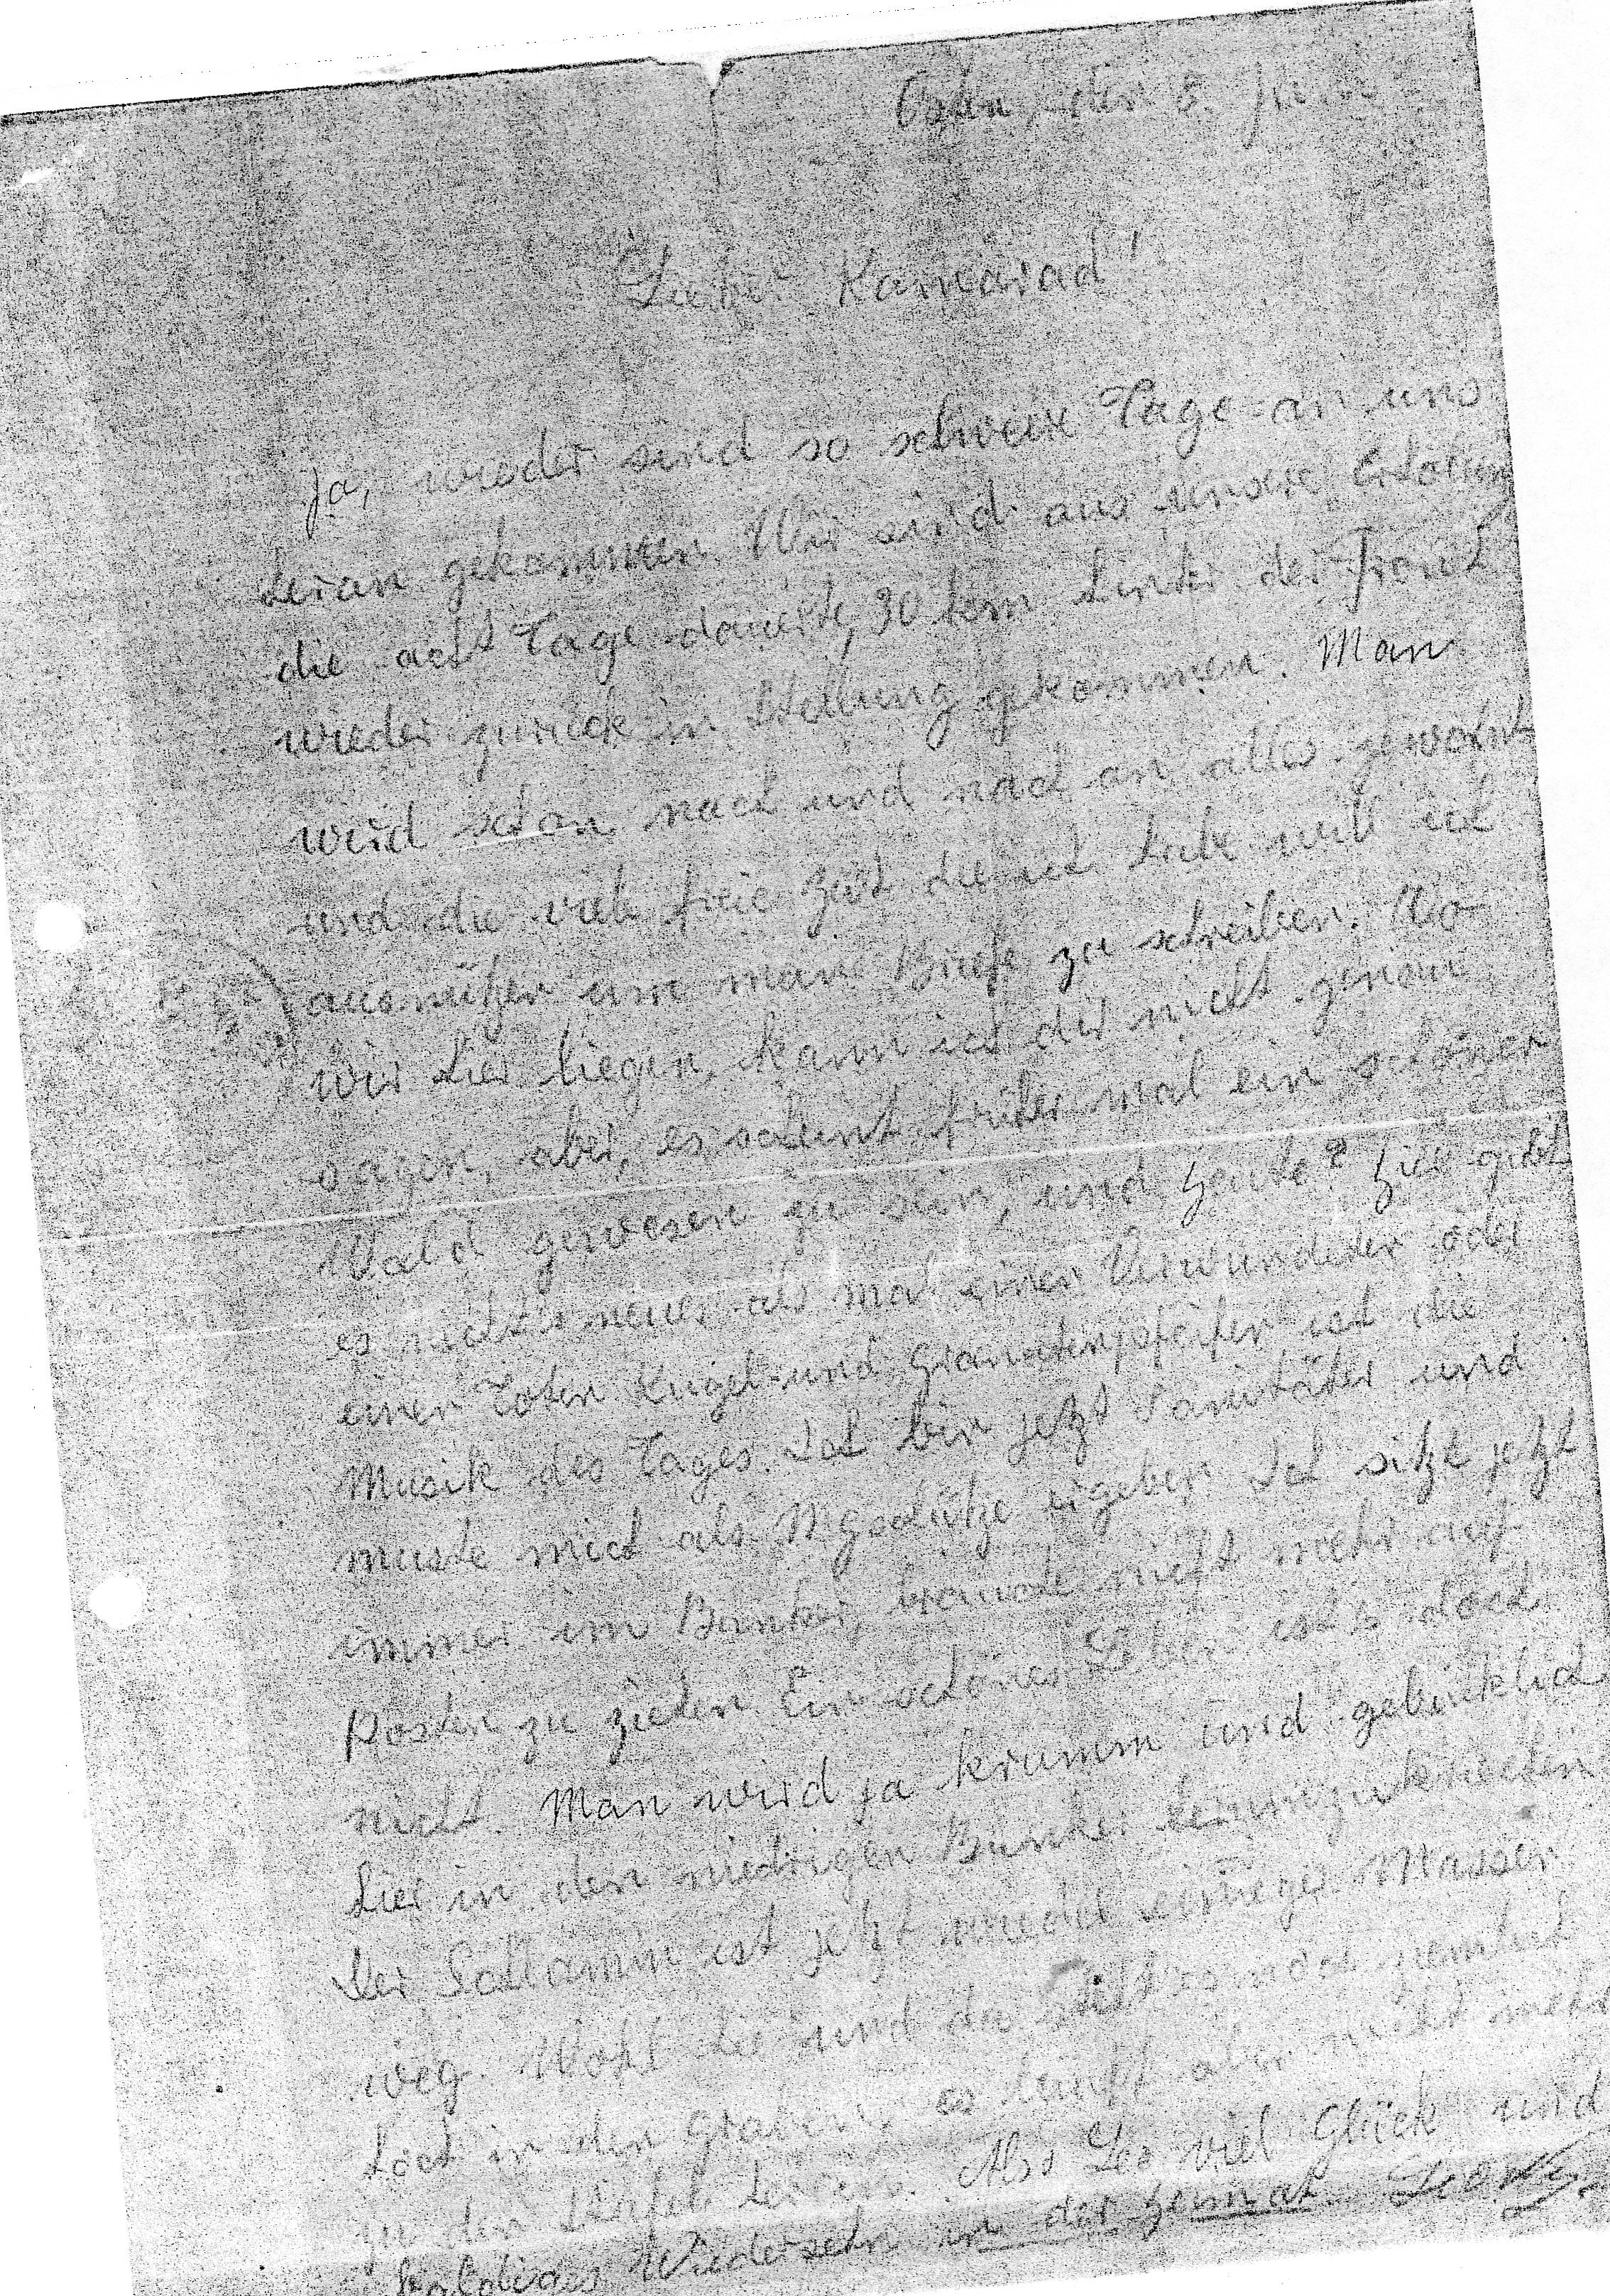 Osten, den 5.
Lieber Kamerad!
Ja, wieder sind so schwere Tage an uns
heran gekommen. Wir sind aus unsere Erholung
die acht Tage dauerte, 30 km hinter der Front
wieder zurück in Stellung gekommen. Man
wird schon nach und nach an alles gewöhnt
und die viele freie Zeit die ich habe will ich
ausnützen um man Briefe zu schreiben. Wo
wir hier liegen, kann ich dir nicht genau
sagen, aber, es scheint früher mal ein schöner
Wald gewesen zu sein, und heute? Hier gibt
es nichts neues als mal einen Verwundeter oder
einen Toten Kugel und Granatenpfeifen ist die
Musik des Tages. Ich bin jetzt Sanitäter und
muste mich als MGschütze ergeben. Ich sitze jetzt
immer im Bunker, brauche nicht mehr auf
Posten zu ziehen. Ein schönes Leben ists doch
nicht. Man wird ja krumm und gebücklich
hier in den niedrigen Bunker herumzukriechen
Der Schlamm ist jetzt wieder einiger Massen
weg. Wohl hie und da steht es noch ziemlich
hoch in den Graben, es läuft aber nicht mehr
zu den Stiefel herein. Also Leo viel Glück und
baldiges Wiedersehn in der Heimat.